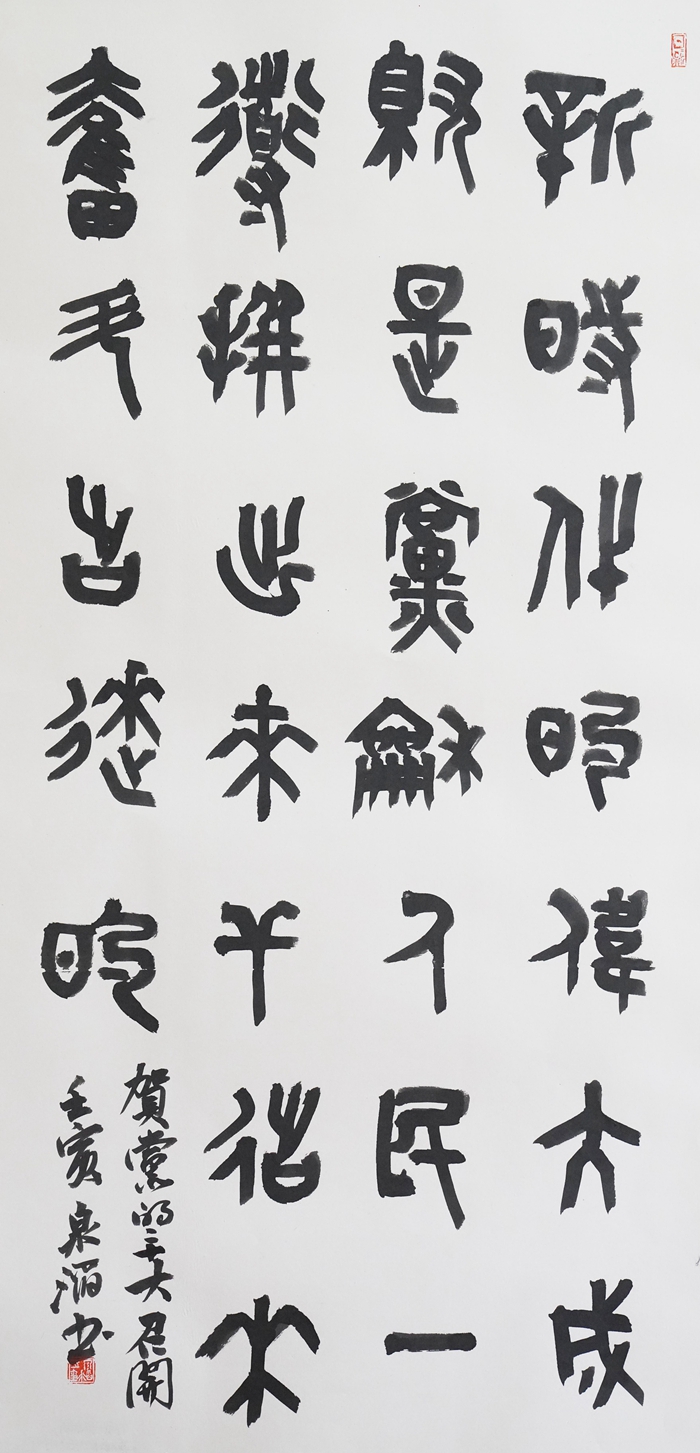 新時代的偉大成
就是黨龢人民一
道拼出来干出来
奮斗出来的
賀黨的二十大召開
壬寅泉滔书